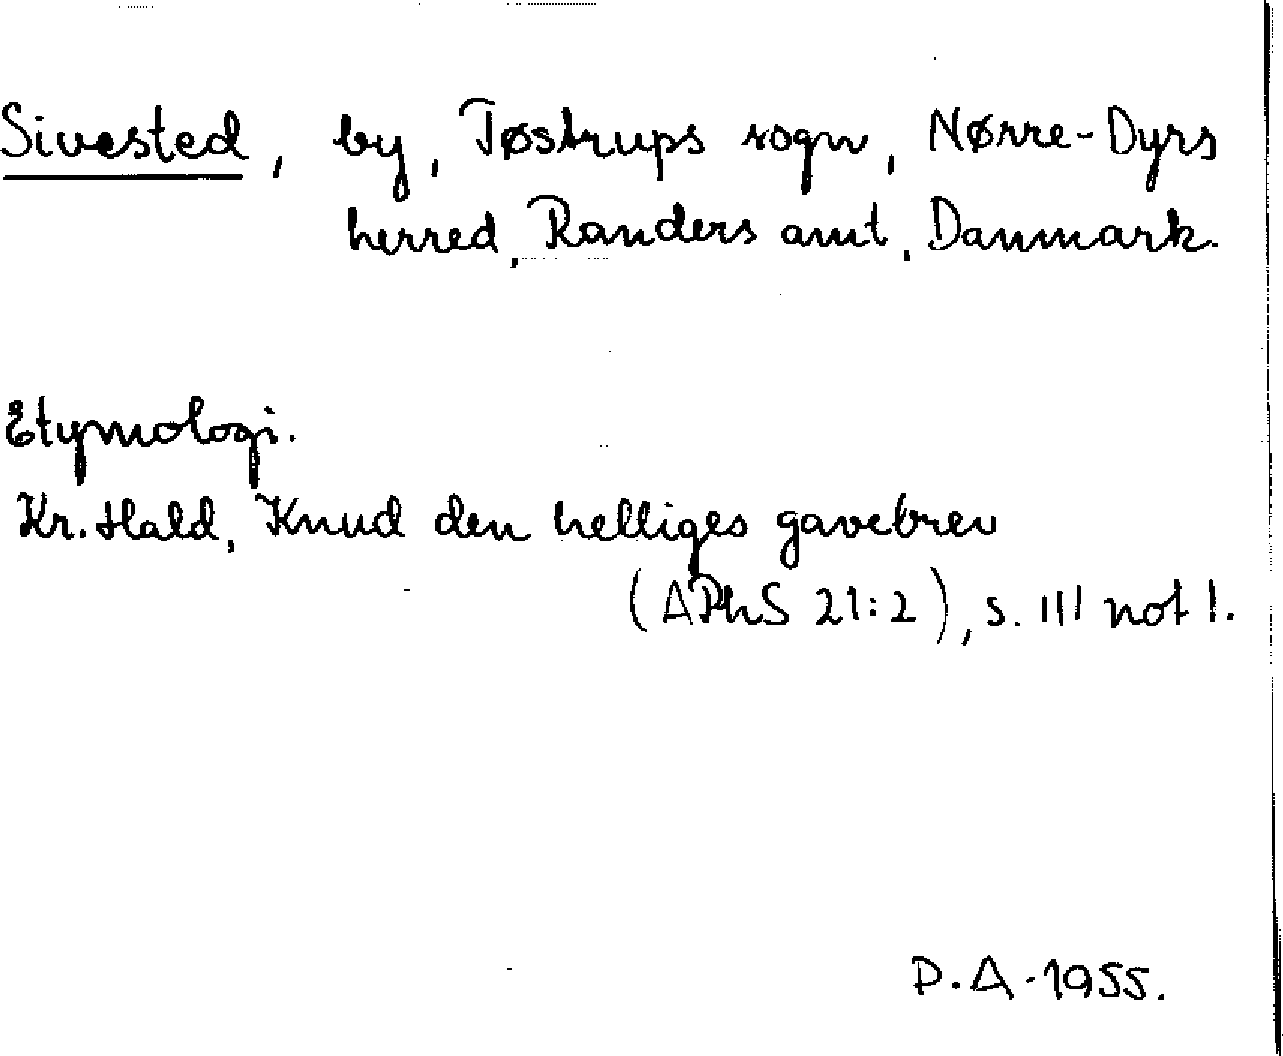 Sivested, by, Tøstrups sogn, Nørre-Dyrs
herred, Randers amt, Danmark.
Etymologi.
Kr. Hald, Knud den helliges gavebrev
(APhS 21:2), s. 111 not 1.
P.A. 1955.